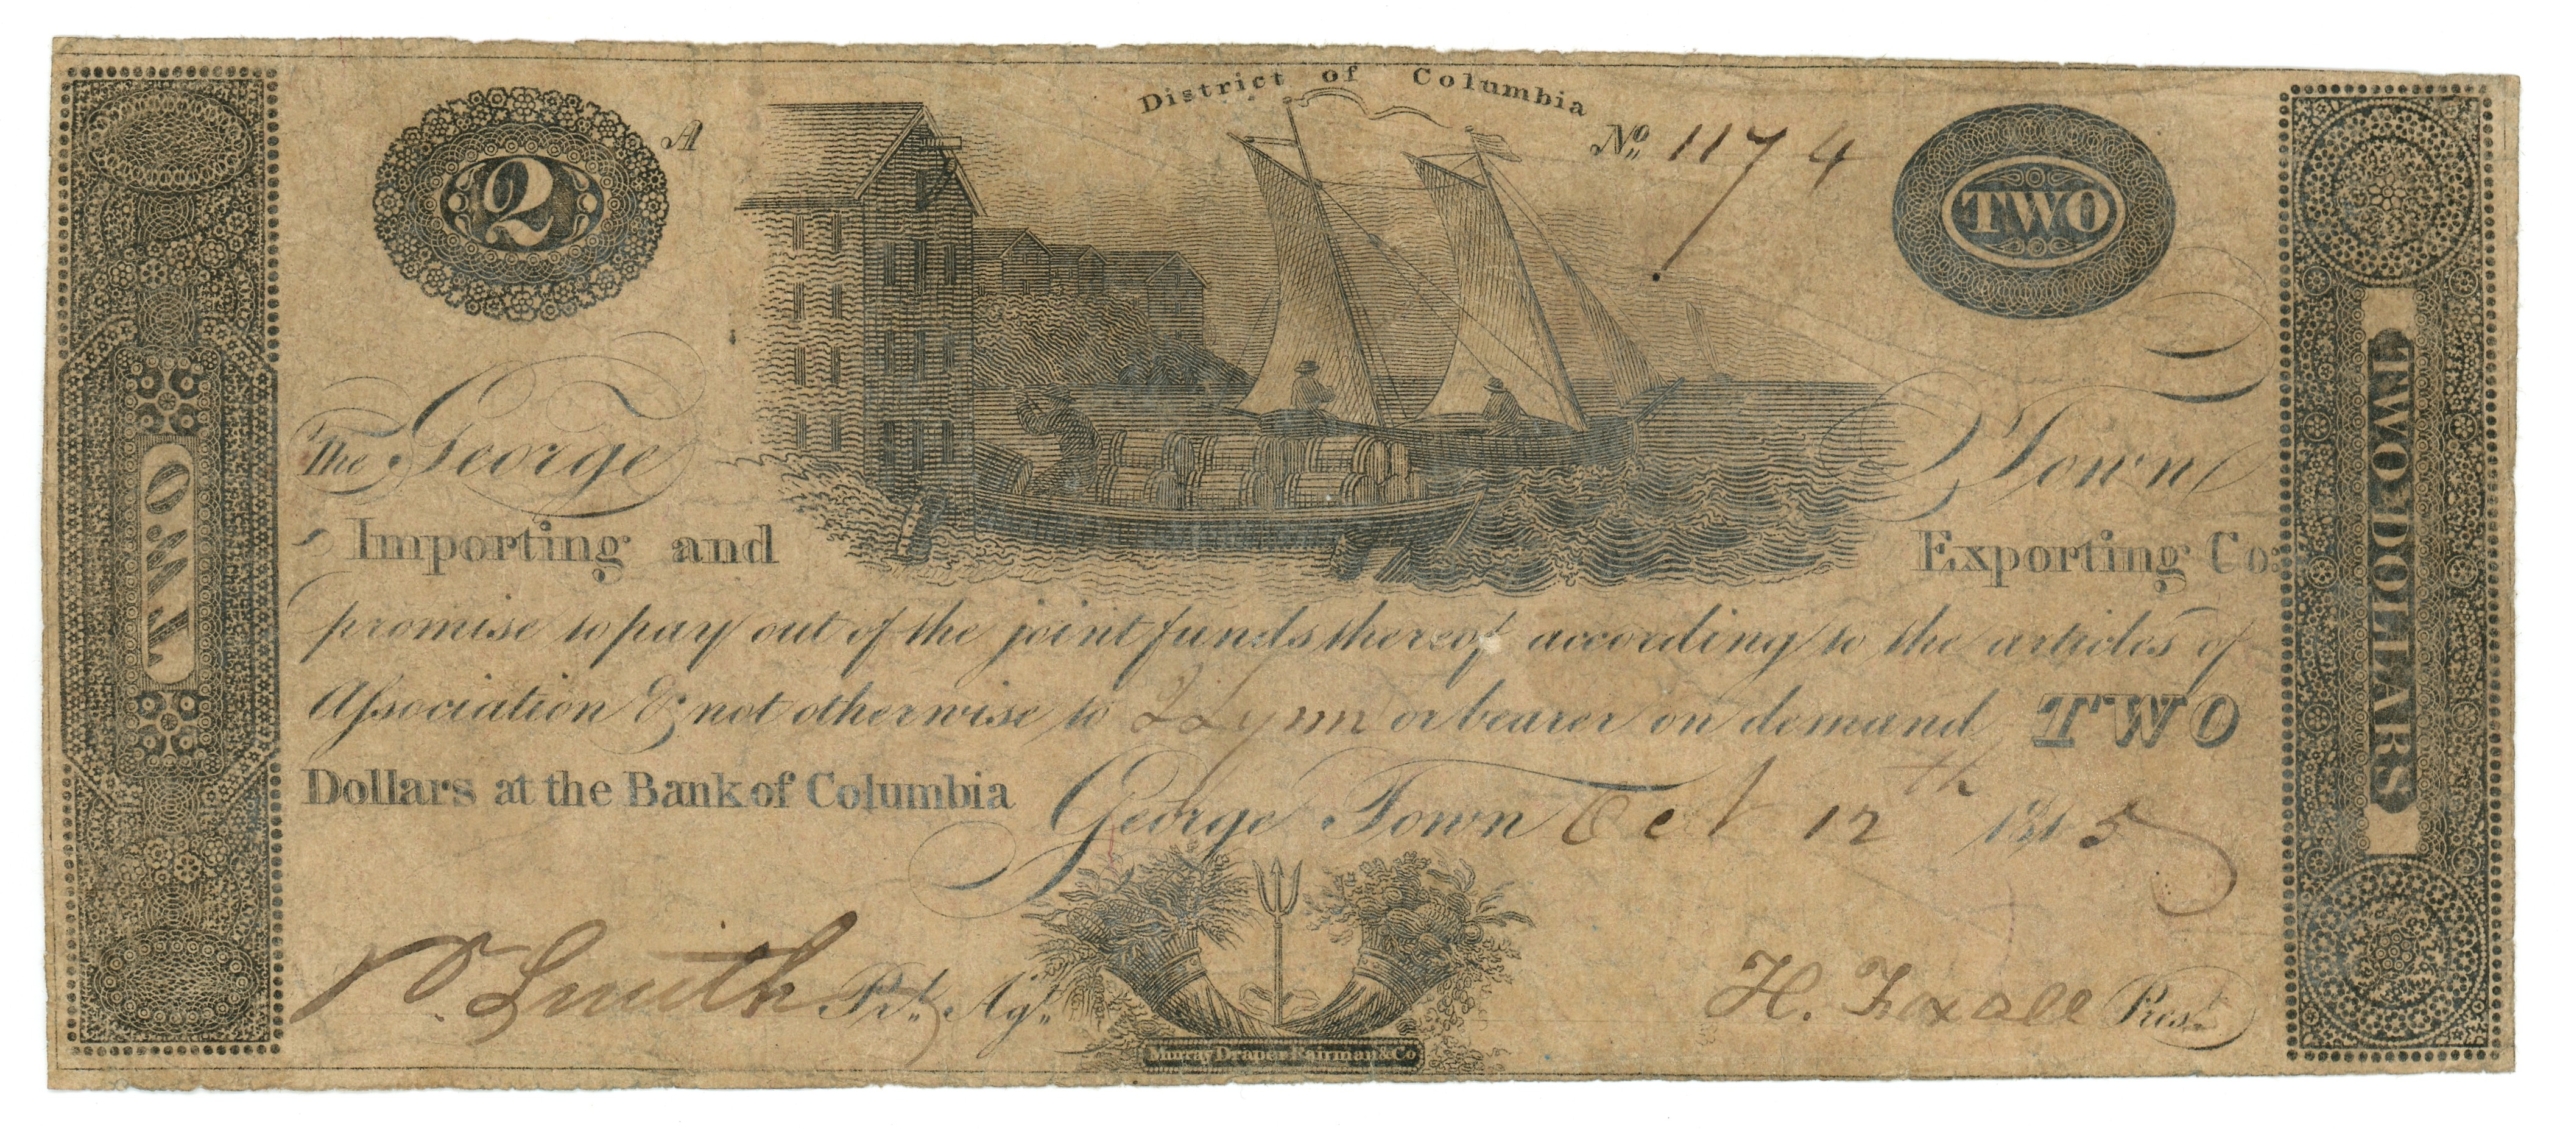 District of Columbia
2 A
No. 1174
TWO
TWO
TWO DOLLARS
The George Town
Importing and Exporting Co:
promise to pay out of the joint funds thereof according to the articles of
Association & not otherwise to Lynn or bearer on demand TWO
Dollars at the Bank of Columbia George Town Oct 12th 1815
Smith Prl. Agt. H. Foxall Prest.
Murray Draper Fairman & Co